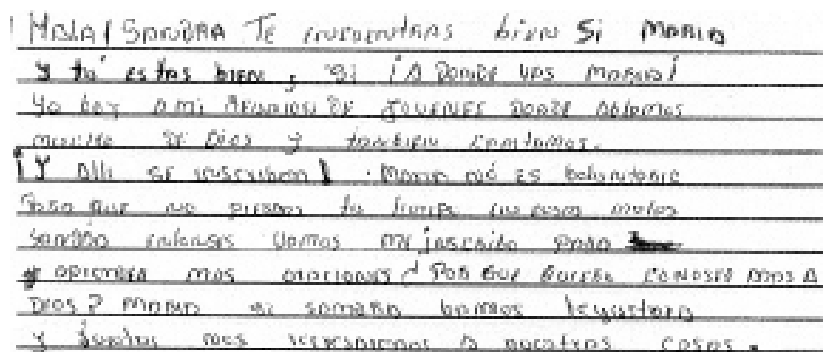 ¡ Hola! SANDRA Te encuentras bien Si MARIA
y tú estas bien, si ¡A DONDE VAS MARIA!
Yo boy A mi REUNION DE JOVENES DONDE Ablamos
mucho DE Dios y tanbien cantamos.
¡Y Alli se inscriben! MARIA no ES boluntario
PARA que no pierdas tu tiempo en esas
SANDRA entonses Vamos me inscribo PARA
aprender mas oraciones ¿ POR QUE QUIERO CONOSER MAS A
DIOS? MARIA si SANDRA bamos
y juntas nos regresamos A nuestras casas.